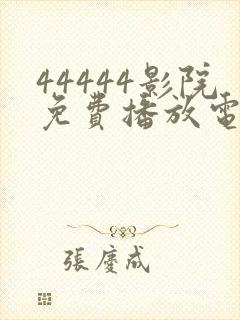 44444影院
免費播放電
張慶成